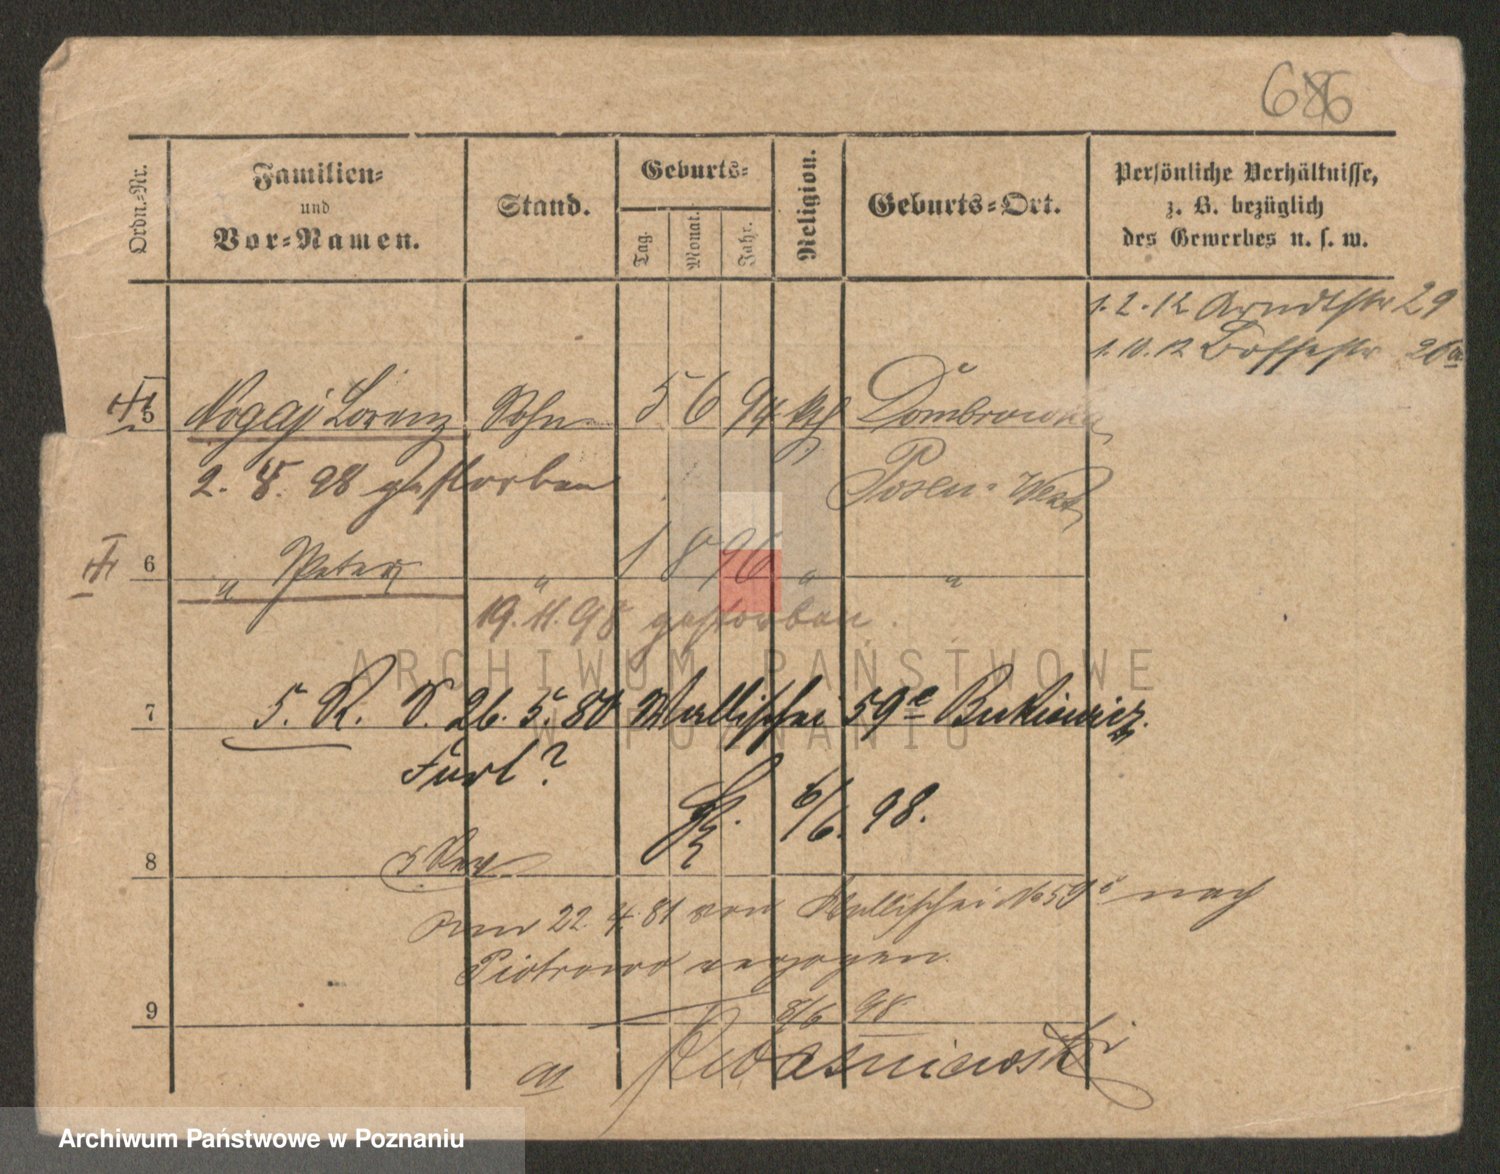 686
Ordn.-Nr.
Familien-
und
Vor-Namen.
Stand.
Geburts-
Tag.
Monat.
Jahr.
Religion.
Geburts-Ort.
Persönliche Verhältnisse,
z. B. bezüglich
des Gewerbes u. s. w.
1.2.12 Arndtstr 29
1.10.12 Bosse str 26a
5 Noggaj Lorenz Sohn 5 6 94 kth Dombrowka
2. 5. 98 gestorben Posen-West
6 " Peter " 1 8 96 " "
19.11.98 gestorben.
7 5. R. V. 26. 5. 80 Wallischei 59c Bukiewicz.
Furl?
6/6. 98.
8 5 Rev
22 4. 81 von Wallischei No 59c nach
Piotrowo verzogen.
9 8/6 98
ARCHIWUM PAŃSTWOWE
W POZNANIU
Archiwum Państwowe w Poznaniu